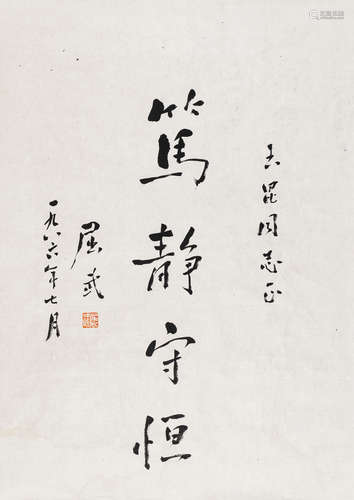 昆同志正
篤静守恒
屈武
一九八六年七月